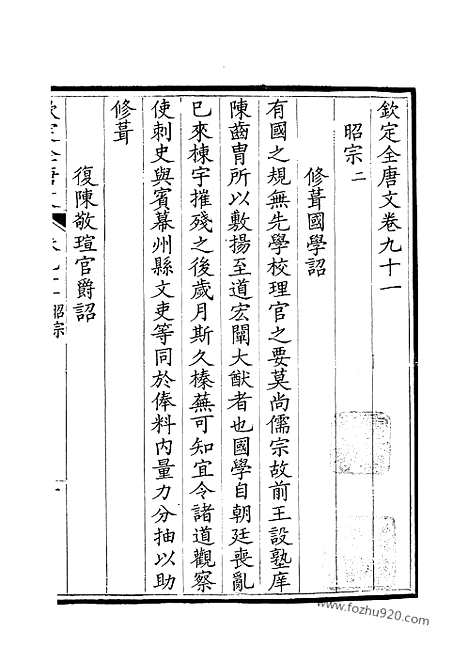 欽定全唐文卷九十一
昭宗二
修葺國學詔
有國之規無先學校理官之要莫尚儒宗故前王設塾庠
陳齒胄所以敷揚至道宏闡大猷者也國學自朝廷喪亂
已來棟宇摧殘之後歲月斯久榛蕪可知宜令諸道觀察
使刺史與賓幕州縣文吏等同於俸料內量力分抽以助
修葺
復陳敬瑄官爵詔
欽定全唐文 卷九十一 昭宗 一
www.fozhu920.com